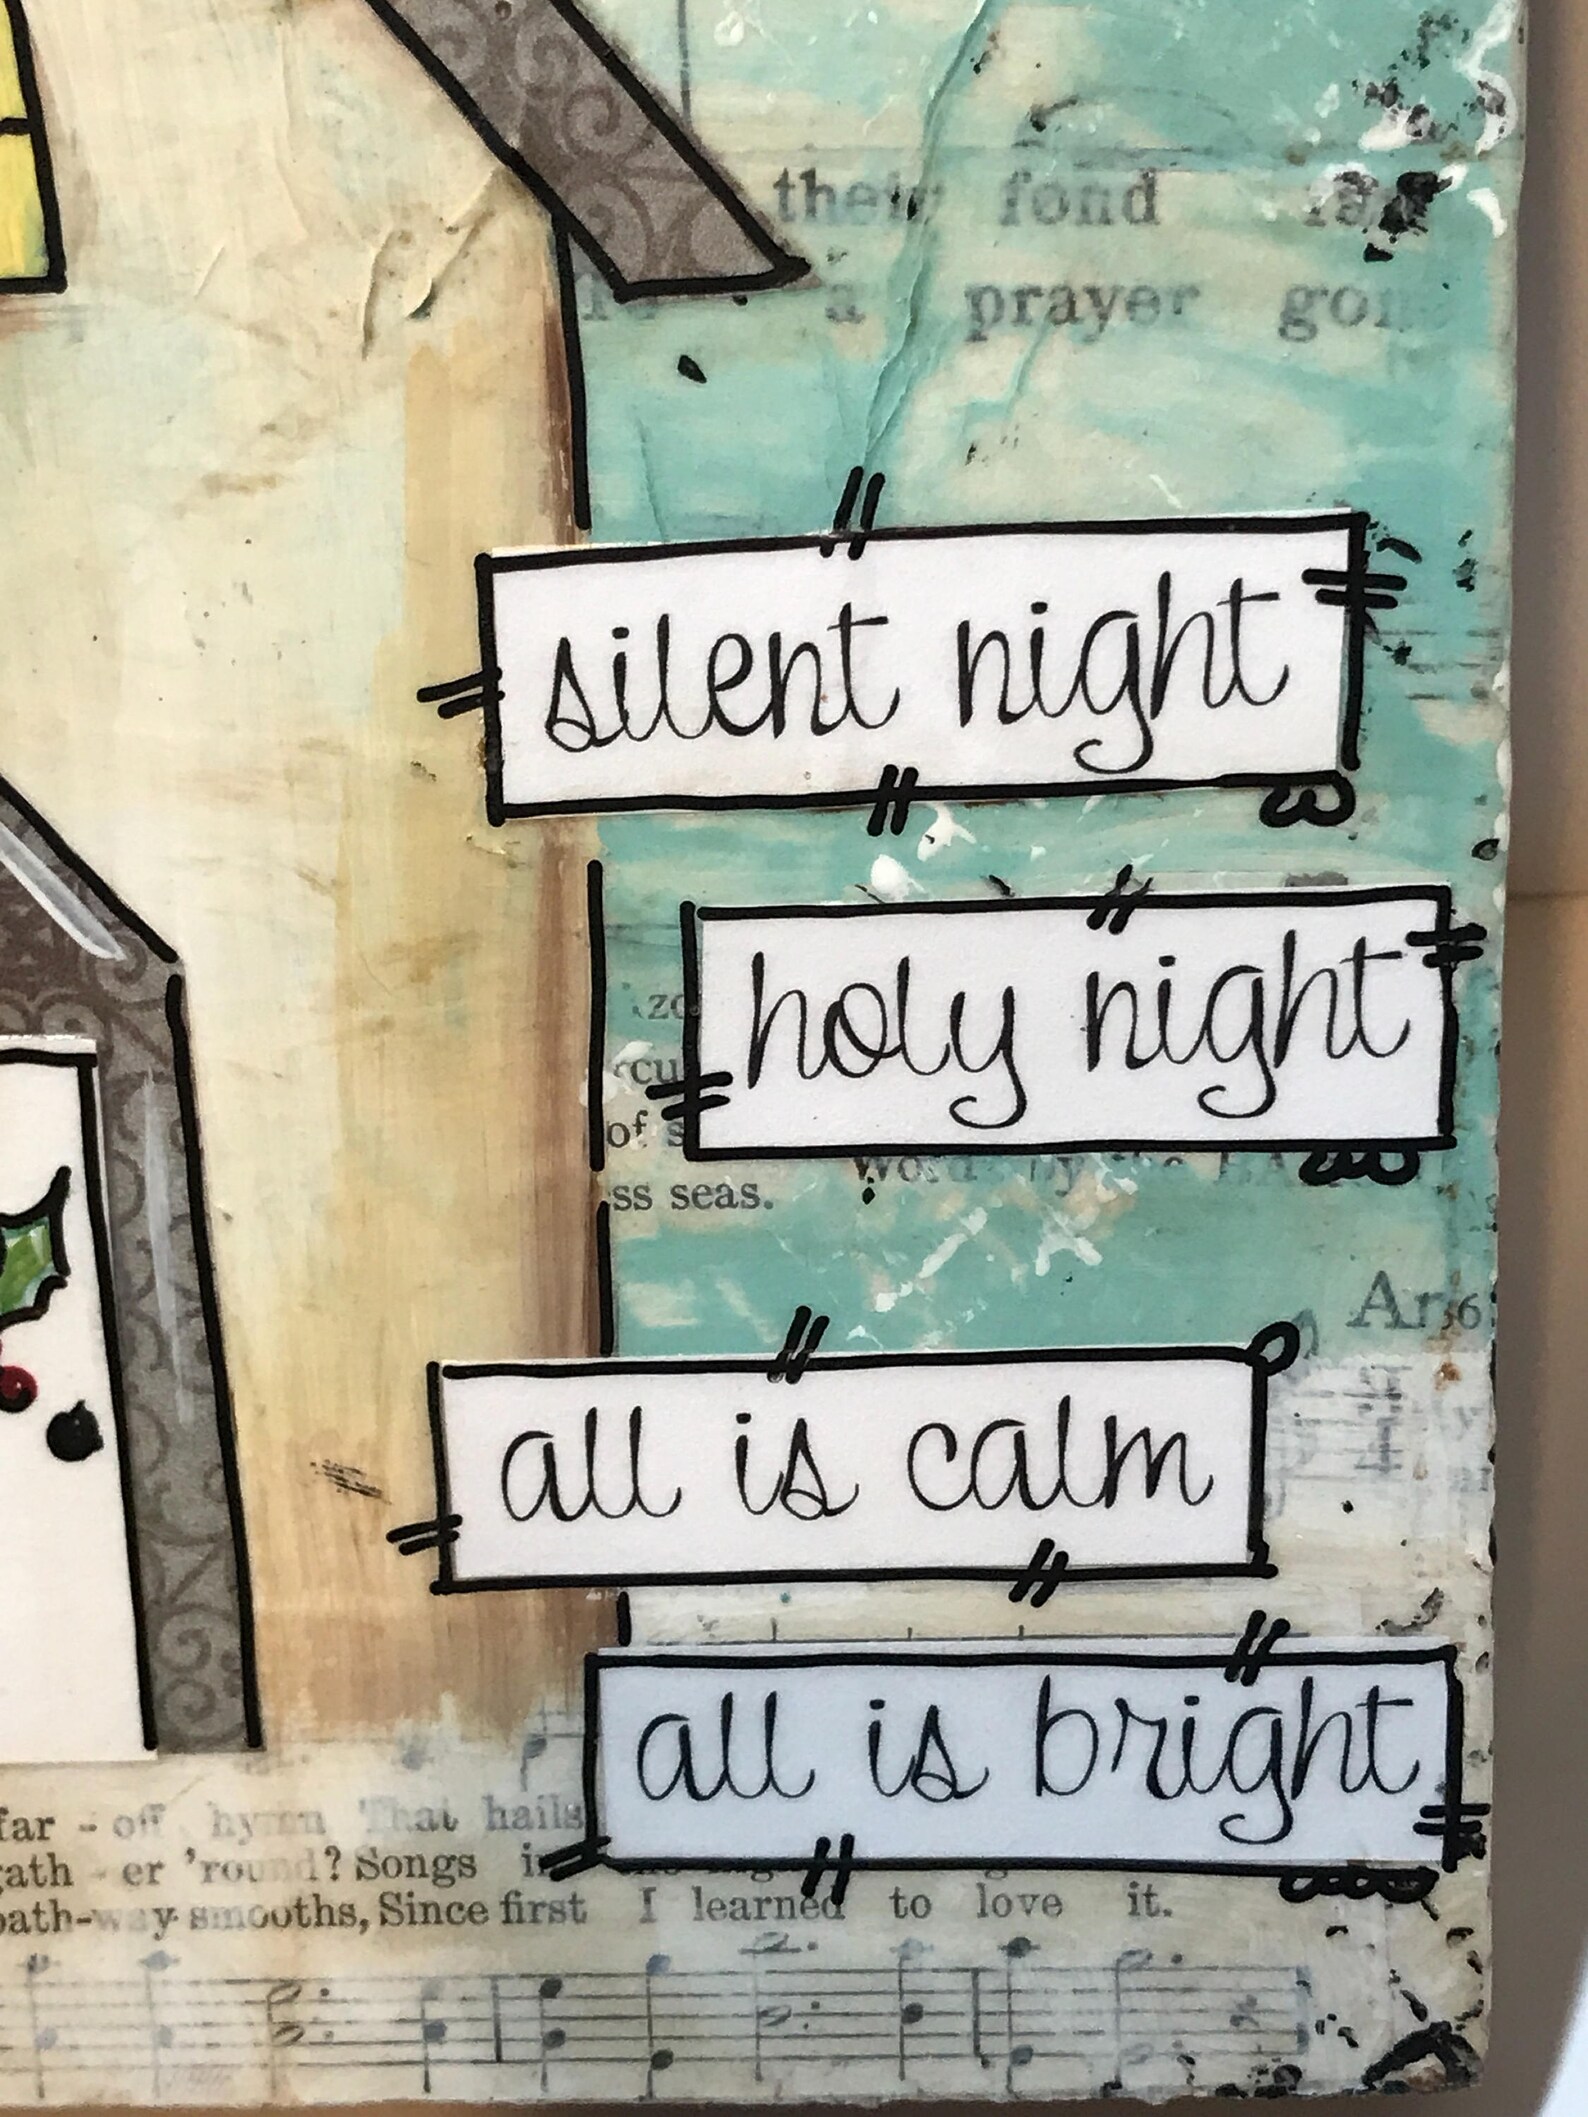 their fond
a prayer
silent night
holy night
of
ss seas.
Words by the
all is calm
all is bright
far - off hymn That hails
er 'round? Songs
smooths, Since first I learned to love it.